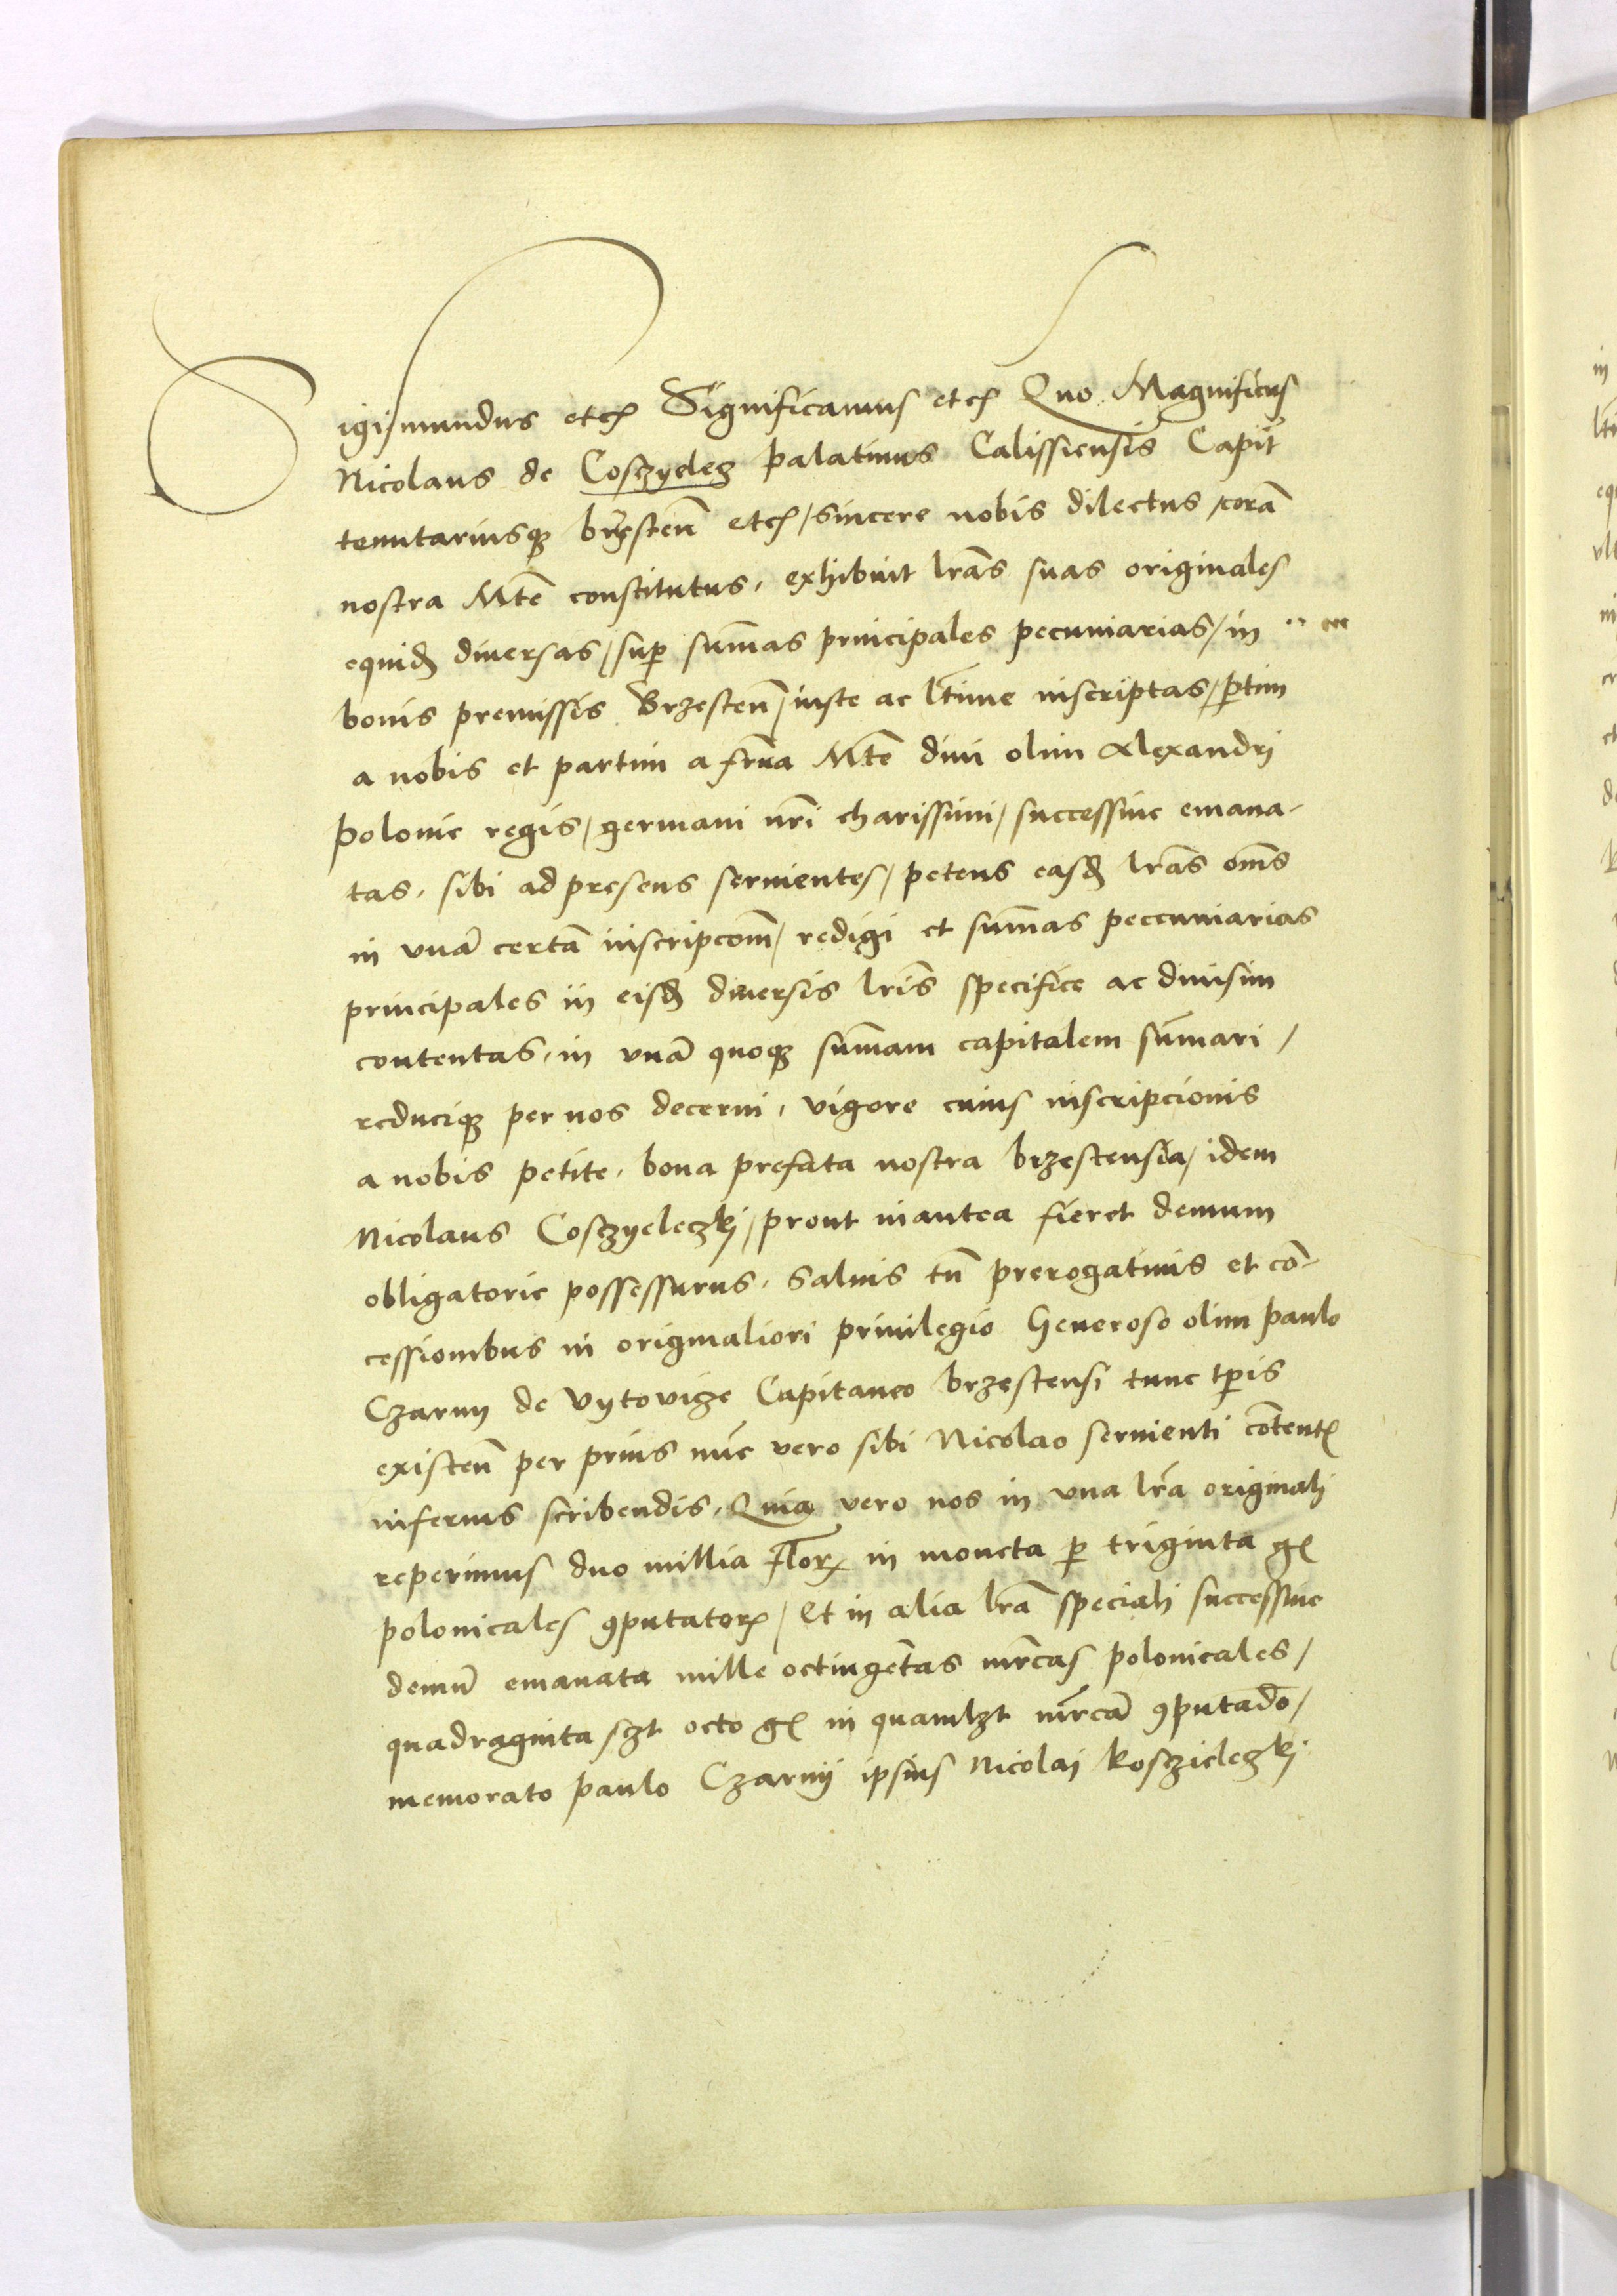 Sigismundus etcꝫ Significamus etcꝫ Quo Magnificus
Nicolaus de Cosczyelecz palatinus Calissiensis Capit̃
tenutariusqꝫ brzesteñ etcꝫ / sincere nobis dilectus / corã
nostra Mtẽ constitutus, exhibuit lr̃as suas originales
equidẽ diuersas / sup̱ sum̃as principales pecuniarias / in
bonis premissis Brzesteñ / iuste ac lt̃ime inscriptas / p̱tim
a nobis et partim a fr̃na Mtẽ diui olim Alexandrj
polonie regis / germani nr̃i charissimi / successiue emana-
tas, sibi ad presens seruientes / petens easdẽ lr̃as om̃s
in vnã certã inscripcom̃ / redigi et sum̃as peccuniarias
principales in eisdẽ diuersis lr̃is specifice ac diuisim
contentas, in vnã quoqꝫ sum̃am capitalem sum̃ari /
reduciqꝫ per nos decerni, vigore cuius inscripcionis
a nobis petite, bona prefata nostra brzestensia / idem
Nicolaus Cosczyeleczkj / prout inantea fieret demum
obligatorie possessurus, Saluis tñ prerogatiuis et cõ-
cessionibus in originaliori priuilegio Generoso olim paulo
Czarny de Vytovicze Capitaneo brzestensi tunc tp̱is
existeñ per prius nũc vero sibi Nicolao seruienti cõtentꝭ
inferius scribendis, Quia vero nos in vna lr̃a originalj
reperimus duo millia florꝝ in moneta p̱ triginta gꝭ
polonicales ꝯputatorꝝ / Et in alia lr̃a specialj successiue
demũ emanata mille octingẽtas mr̃cas polonicales /
quadraginta sczt octo gꝭ in quamlzt mr̃cã ꝯputãdo /
memorato paulo Czarnij ipsius Nicolaj Koscieleczkj